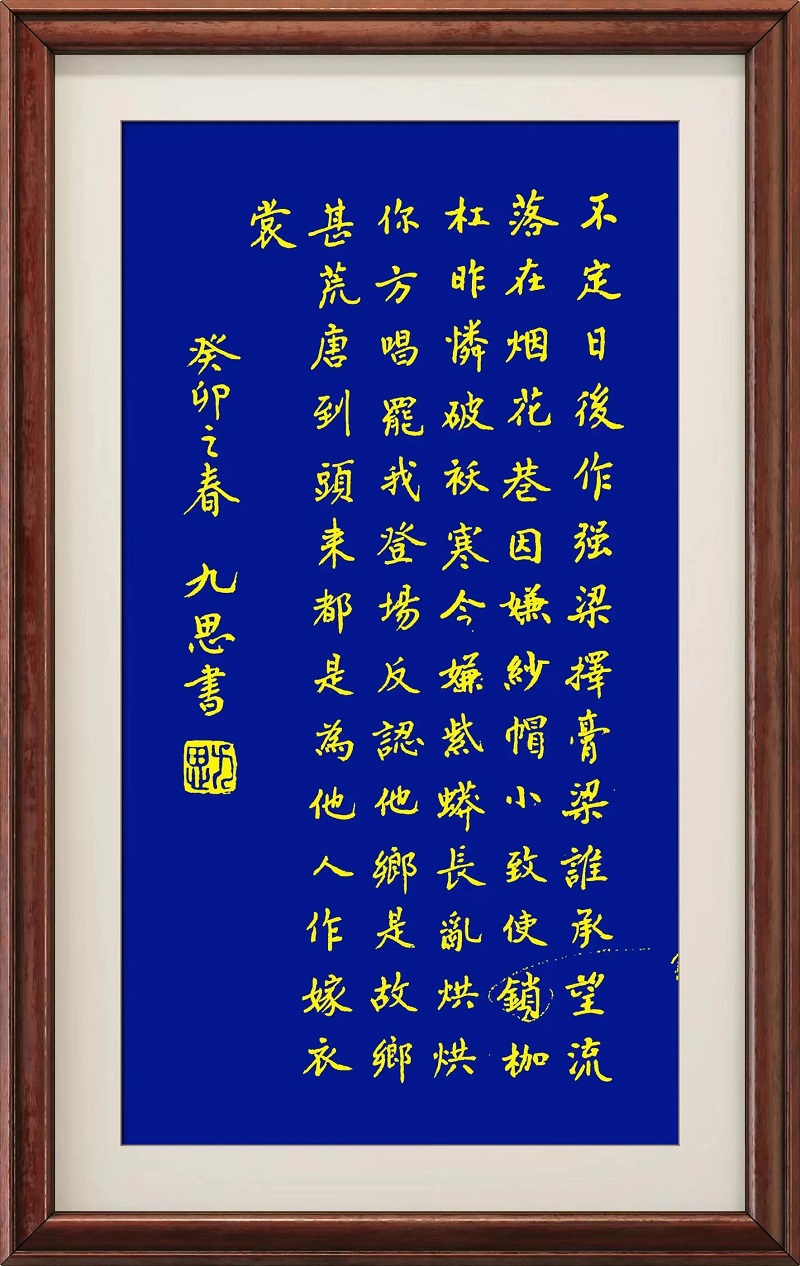 不定日後作强梁擇膏梁誰承望流
落在烟花巷因嫌紗帽小致使鎖枷
杠昨憐破袄寒今嫌紫蟒長亂烘烘
你方唱罷我登場反認他鄉是故鄉
甚荒唐到頭来都是為他人作嫁衣
裳
癸卯之春 九思書
九思